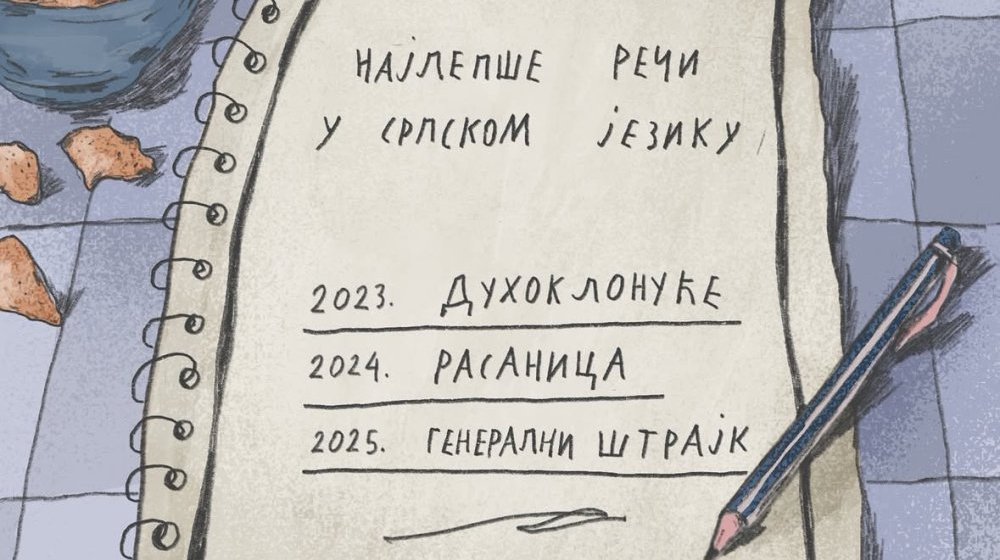 НАЈЛЕПШЕ РЕЧИ
У СРПСКОМ ЈЕЗИКУ
2023. ДУХОКЛОНУЋЕ
2024. РАСАНИЦА
2025. ГЕНЕРАЛНИ ШТРАЈК